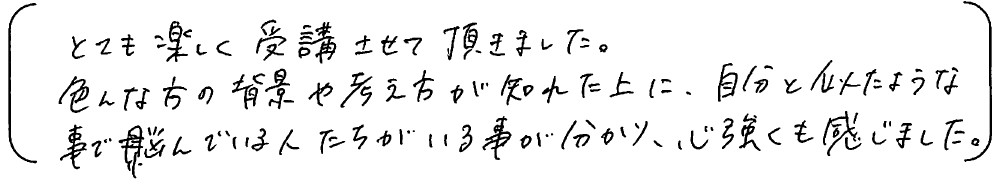 とても楽しく受講させて頂きました。
色んな方の背景や考え方が知れた上に、自分と似たような
事で悩んでいる人たちがいる事が分かり、心強くも感じました。